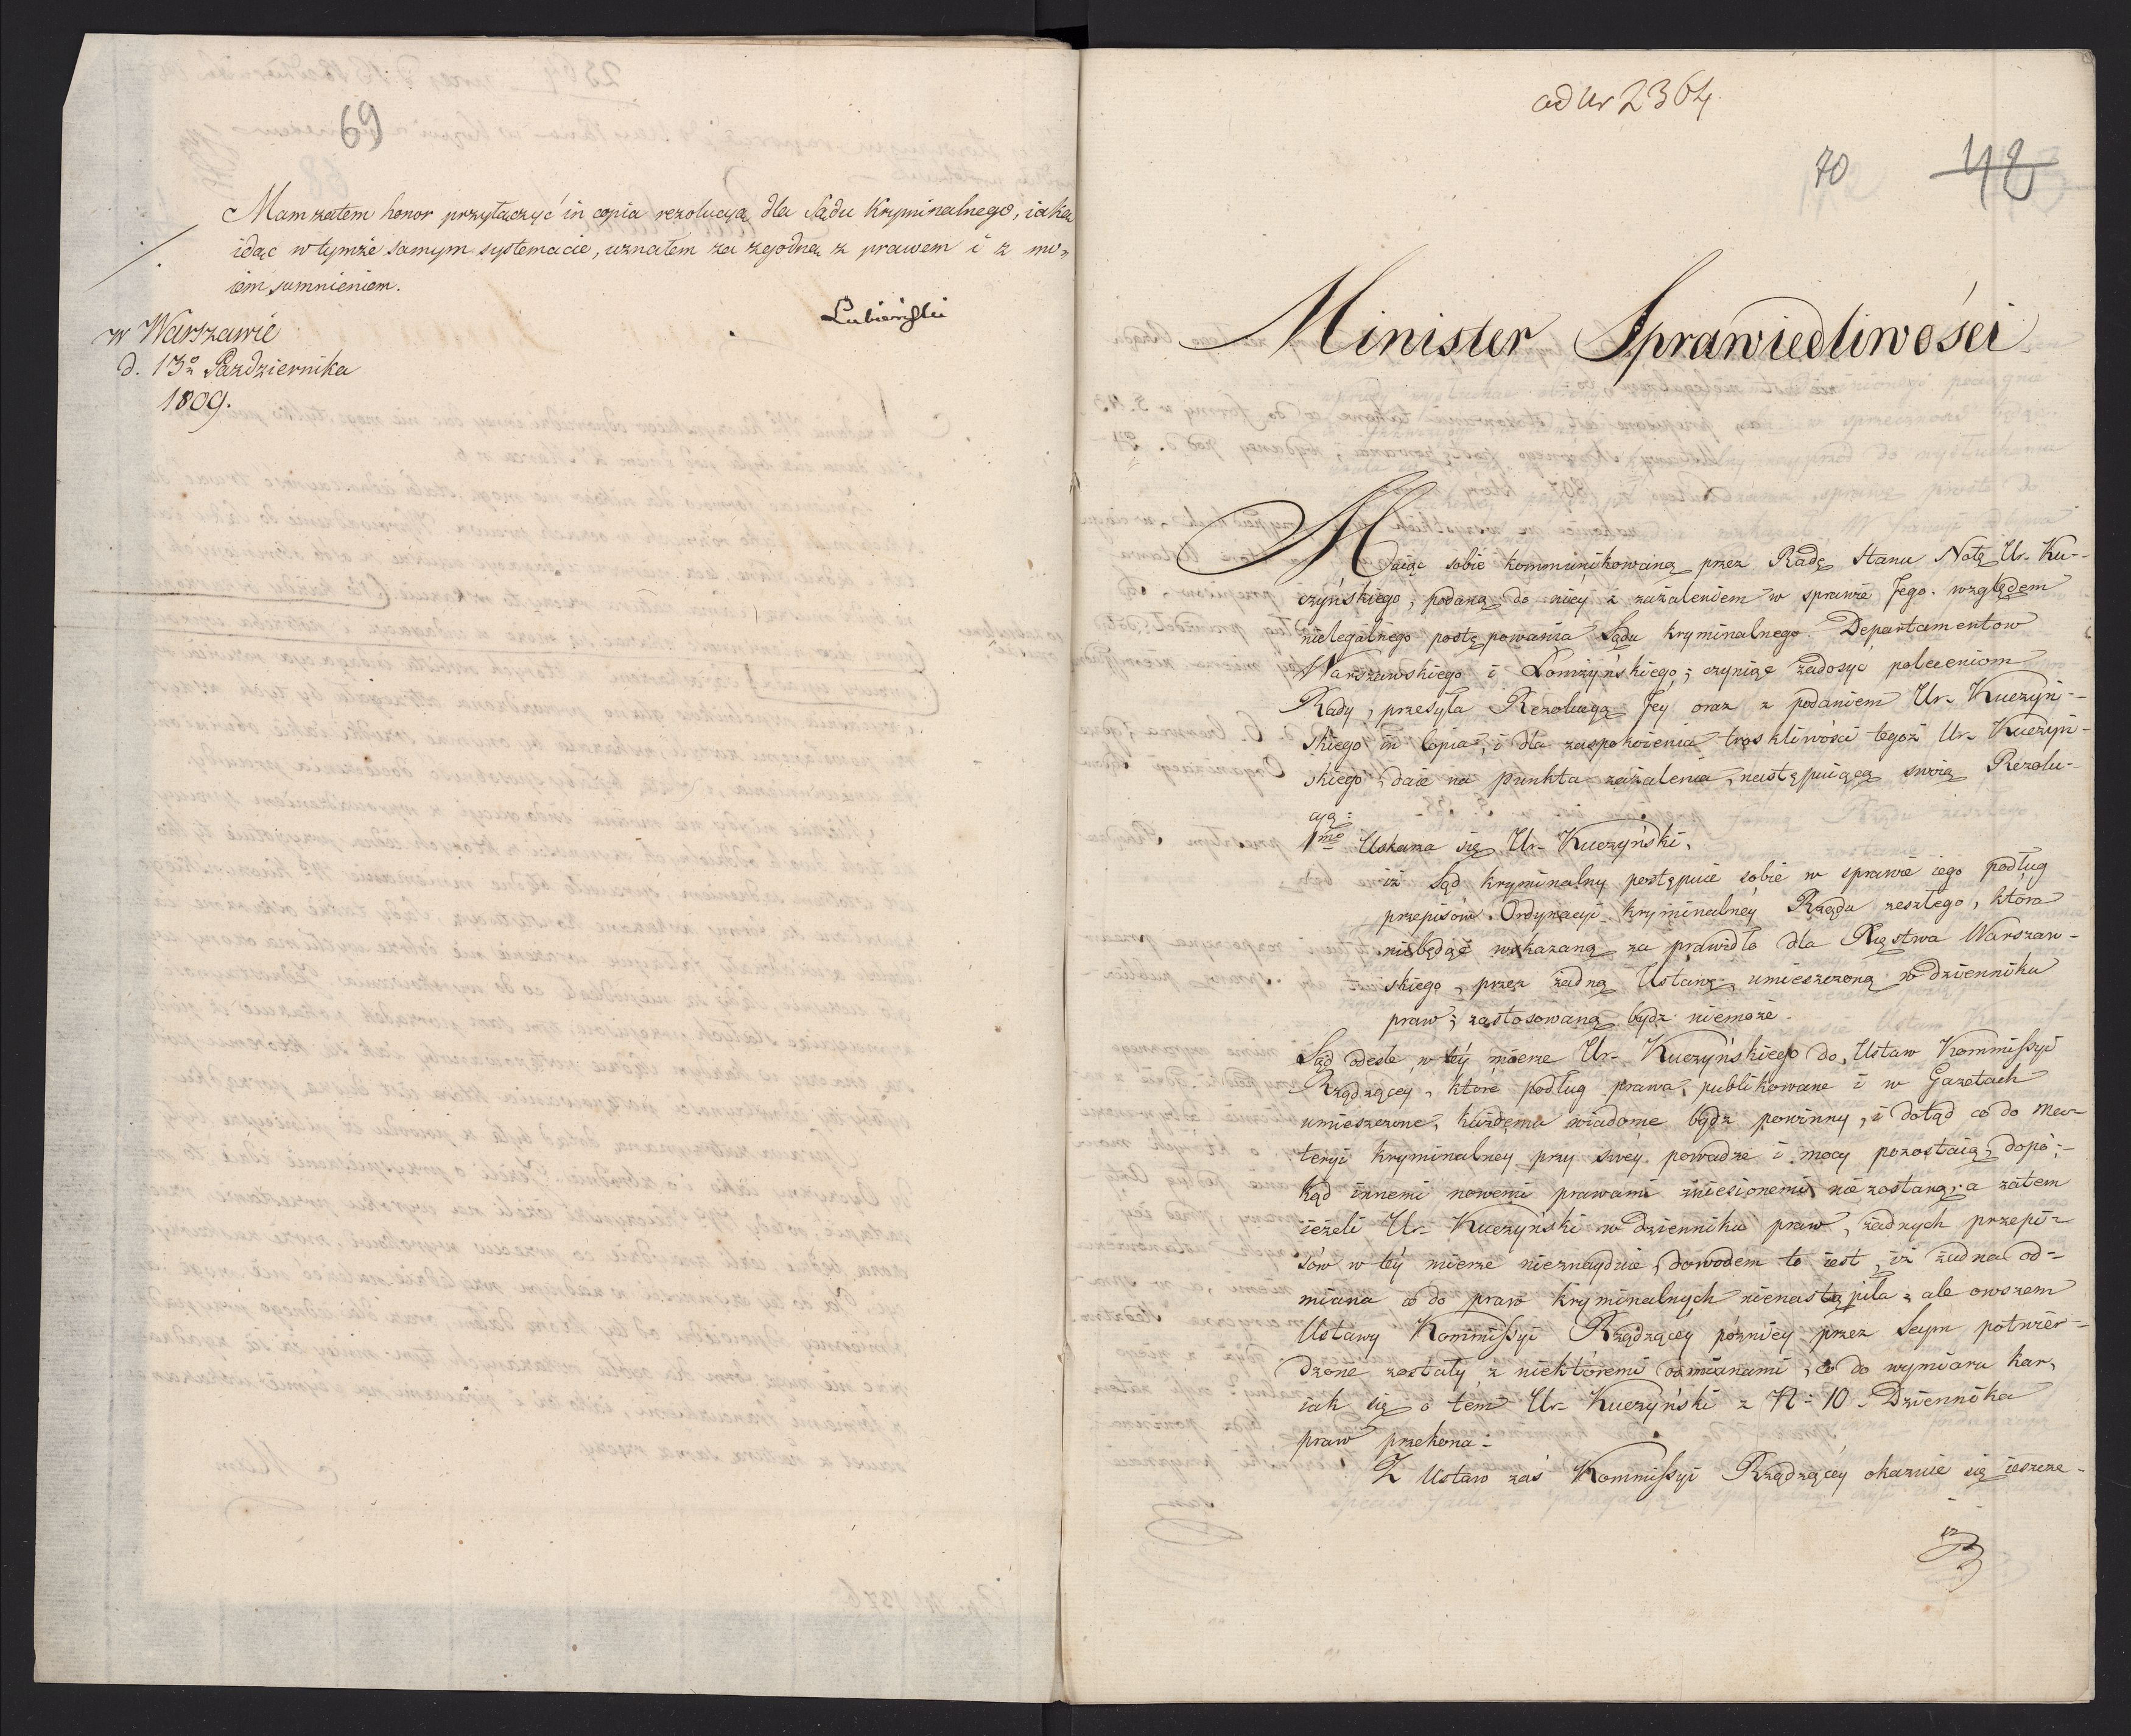 69
Mam zatem honor przyłączyć in copia rezolucyą dla Sądu Kryminalnego, iaką
idąc w tymże samym systemacie, uznałem za zgodną z prawem i z mo=
iem sumnieniem.
Lubieński
w Warszawie
d. 13º Października
1809.
ad Nr 2364
70 42
Minister Sprawiedliwości
Maiąc sobie kommunikowaną przez Radę Stanu Notę Ur. Ku-
czyńskiego, podaną do niey z zażaleniem w sprawie Jego względem
nielegalnego postępowania Sądu Kryminalnego Departamentow
Warszawskiego i Łomżyńskiego; czyniąc zadosyć poleceniom
Rady, przesyła Rezolucyą Jey oraz z podaniem Ur. Kuczyń-
skiego in Copia, i dla zaspokoienia troskliwości tegoż Ur. Kuczyń-
skiego, daie na punkta zażalenia, następuiącą swoią Rezolu-
cyą:
1mo Uskarża się Ur. Kuczyński,
iż Sąd kryminalny postępuie sobie w sprawie iego podług
przepisów Ordynacyi kryminalney Rządu zeszłego, która
niebędąc wskazaną za prawidło dla Xięstwa Warszaw-
skiego, przez żadną Ustawę umieszczoną w dzienniku
praw; zastosowaną bydz niemoże.
Sąd odeśle w tey mierze Ur. Kuczyńskiego do Ustaw Kommissyi
Rządzącey, które podług prawa publikowane i w Gazetach
umieszczone, każdemu wiadome bydz powinny, i dotąd co do ma-
teryi kryminalney przy swey powadze i mocy pozostaią, dopó-
kąd innemi nowemi prawami zniesionemi nie zostaną; a zatem
ieżeli Ur. Kuczyński w dzienniku praw, żadnych przepi-
sów w tey mierze nieznayduie, dowodem to iest, iż żadna od=
miana co do praw kryminalnych nienastąpiła, ale owszem
Ustawy Kommissyi Rządzącey późniey przez Seym potwier-
dzone zostały z niektóremi odmianami, co do wymiaru kar,
iak się o tem Ur. Kuczyński z N: 10. Dziennika
praw przekona.
Z Ustaw zaś Kommissyi Rządzącey okazuie się ieszcze
iż